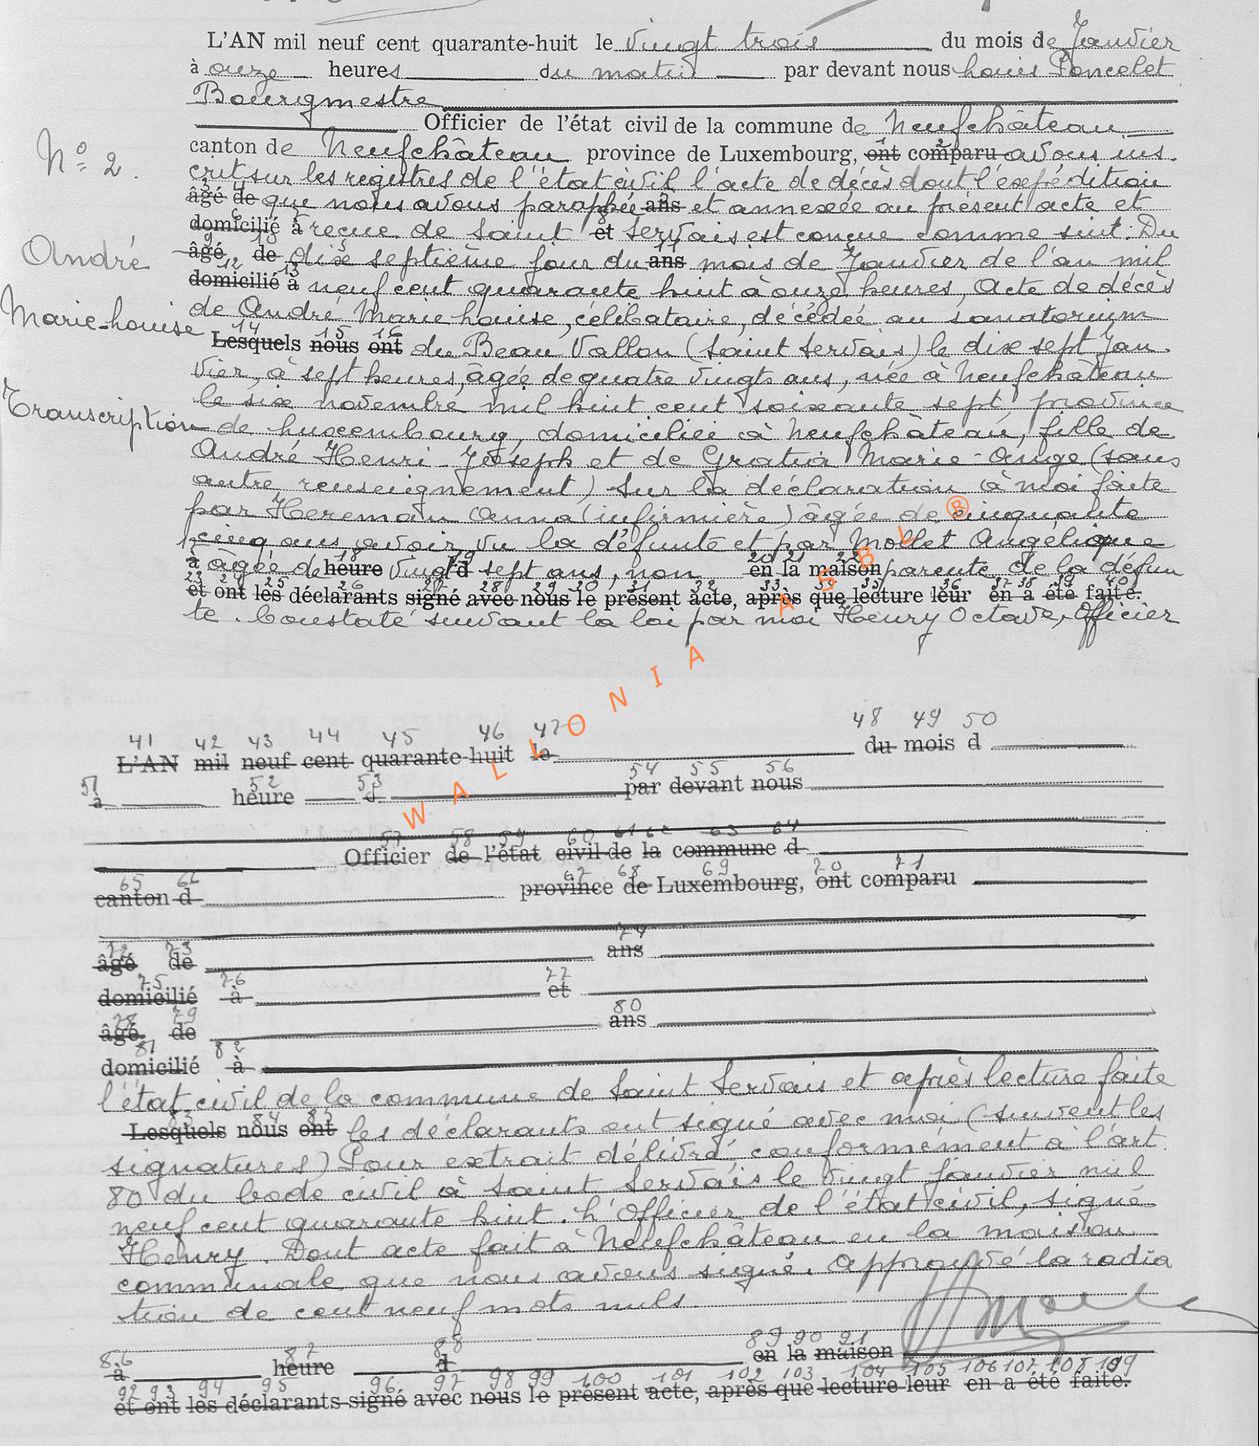 L'AN mil neuf cent quarante-huit le vingt trois du mois de Janvier
à onze heures du matin par devant nous Louis Poncelet
Bourgmestre
Officier de l'état civil de la commune de Neufchâteau
N° 2.
canton de Neufchâteau province de Luxembourg, ont comparu avons ins
crit sur les registres de l'état civil l'acte de décès dont l'expédition
âgé de que nous avons paraphée ans et annexée au présent acte et
domicilié à reçue de Saint et Servais est conçue comme suit : Du
André
âgé de dix septième jour du ans mois de Janvier de l'an mil
domicilié à neuf cent quarante huit à onze heures, Acte de décès
Marie-Louise
de André Marie Louise, célibataire, décédée au sanatorium
Lesquels nous ont du Beau Vallon (Saint Servais) le dix sept Jan
vier, à sept heures, âgée de quatre vingts ans, née à Neufchâteau
Transcription
le six novembre mil huit cent soixante sept, province
de Luxembourg, domiciliée à Neufchâteau, fille de
André Henri Joseph et de Gratia Marie-Ange (sans
autre renseignement) Sur la déclaration à moi faite
par Hereman Anna (infirmière) âgée de cinquante
cinq ans, avoir vu la défunte et par Mollet Angélique
à âgée de heure vingt d sept ans, non en la maison parente de la défun
et ont les déclarants signé avec nous le présent acte, après que lecture leur en a été faite.
te. Constaté suivant la loi par moi Henry Octave, Officier
L'AN mil neuf cent quarante-huit le du mois d
à heure d par devant nous
Officier de l'état civil de la commune d
canton d province de Luxembourg, ont comparu
âgé de ans
domicilié à et
âgé de ans
domicilié à
l'état civil de la commune de Saint Servais et après lecture faite
Lesquels nous ont les déclarants ont signé avec moi (suivent les
signatures) Pour extrait délivré conformément à l'art
80 du Code civil à Saint Servais le vingt Janvier mil
neuf cent quarante huit. L'Officier de l'état civil, signé
Henry. Dont acte fait à Neufchâteau en la maison
communale que nous avons signé. Approuvé la radia
tion de cent neuf mots nuls.
à heure d en la maison
et ont les déclarants signé avec nous le présent acte, après que lecture leur en a été faite.
WALLONIA ASBL ®